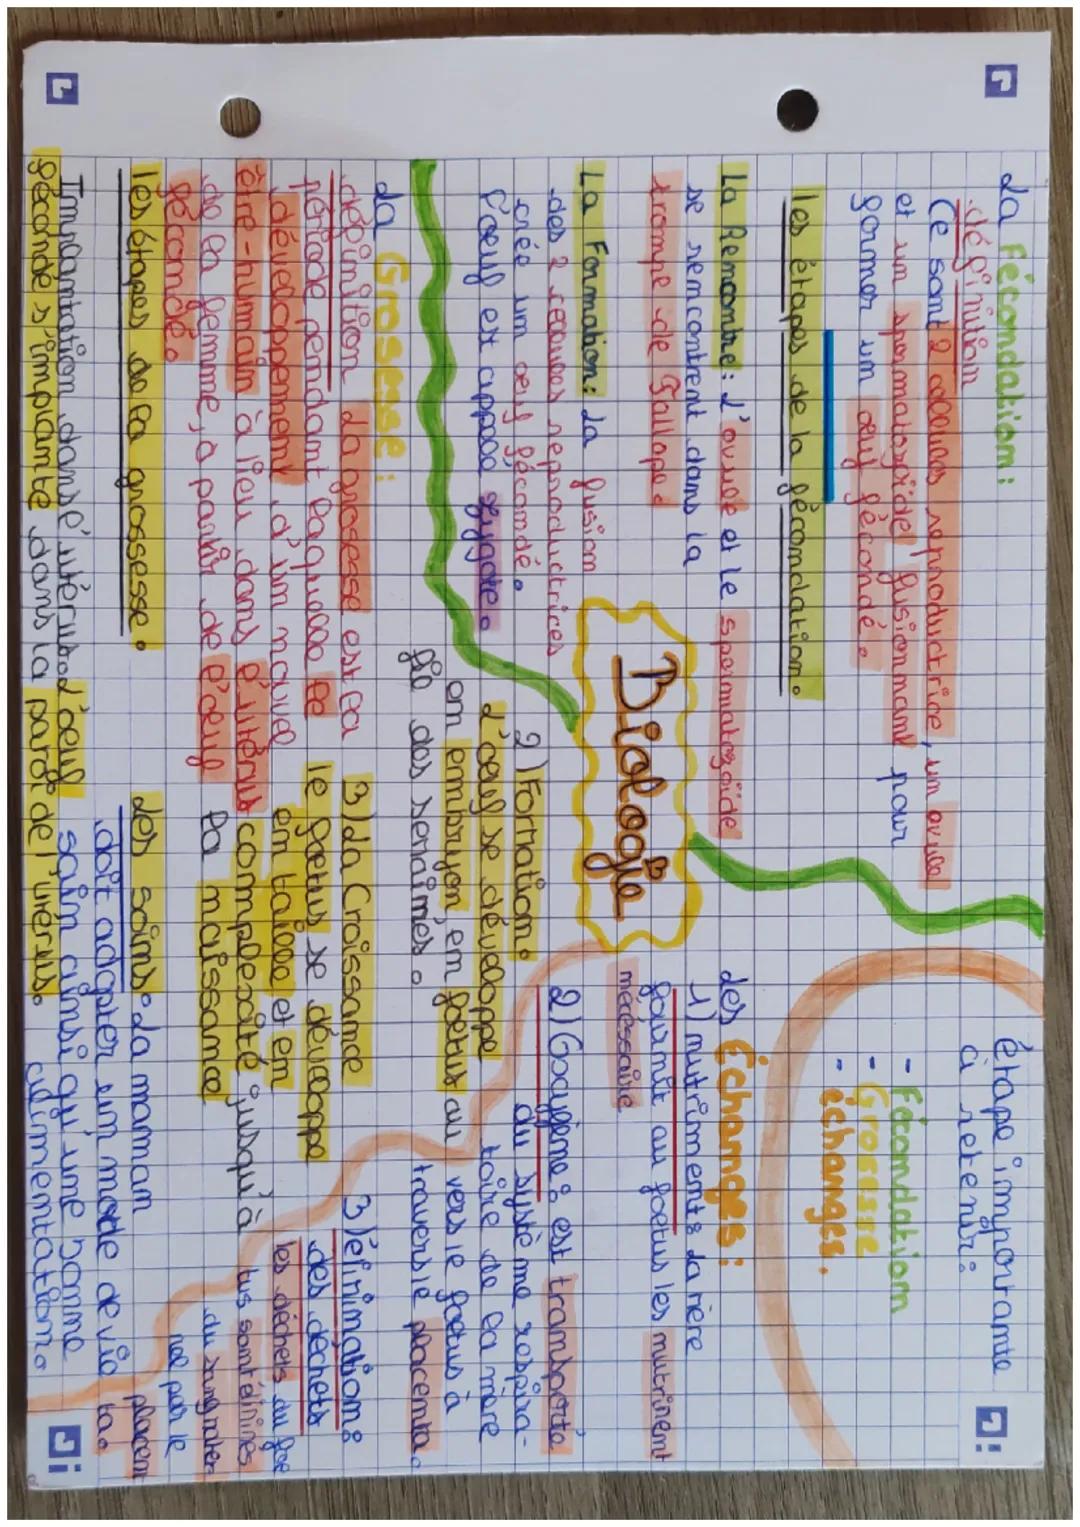 La Fécondation:
définition
Ce sont 2 cellules reproductrice, un ovule
et un spermatozoïde fusionnant pour
former un œuf fécondé.
les étapes de la fécondation.
La Rencontre: L'ovule et le spermatozoïde
se rencontrent dans la
trompe de Fallope.
La Formation: La fusion
des 2 cellules reproductrices
crée un œuf fécondé.
l'œuf est appelé zygote.
Biologie
étape importante
à retenir:
- Fécondation
- Grossesse
- échanges.
des Échanges:
1) nutriments La mère
fournit au fœtus les nutriment
nécessaire
2) l'oxygène: est transporté
du système respira-
toire de la mère
vers le fœtus à
travers le placenta.
3) élimination:
des déchets
les déchets du fœ
tus sont élimines
du sang mater
nel par le
placent
ta.
La Grossesse:
définition La grossesse est la
période pendant laquelle le
développement d'un nouvel
être-humain à lieu dans l'utérus
de la femme, a partir de l'œuf
fécondé.
les étapes de la grossesse.
Implantation dans l'utérus: L'œuf
fécondé s'implante dans la paroi de l'utérus.
2) Formation:
L'œuf se développe
en embryon, en fœtus au
fil des semaines.
3) La Croissance
le fœtus se développe
en taille et en
complexité jusqu'à
la naissance
des soins: La maman
doit adopter un mode de vie
sain ainsi qu'une bonne
alimentation.